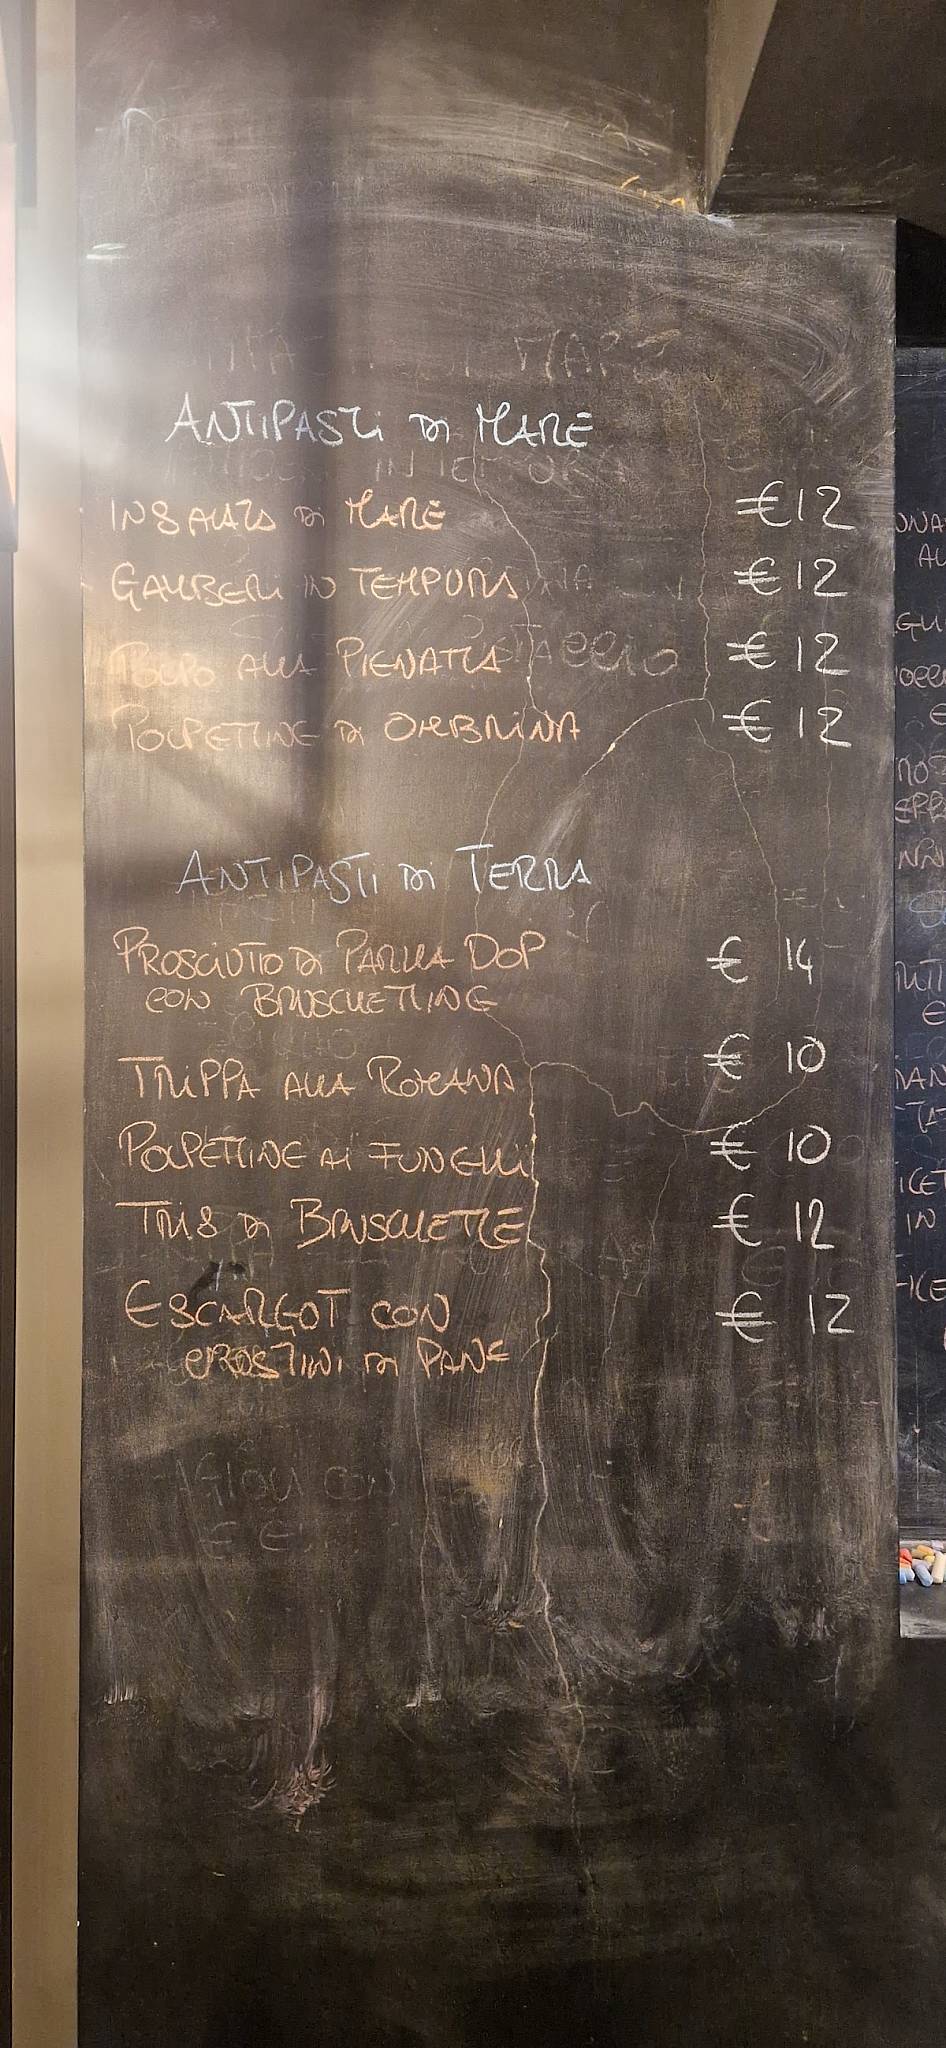 ANTIPASTI DI MARE
INSALATA DI MARE €12
GAMBERI IN TEMPURA €12
POLPO ALLA PIGNATTA €12
POLPETTINE DI OMBRINA €12
ANTIPASTI DI TERRA
PROSCIUTTO DI PARMA DOP € 14
CON BRUSCHETTINE
TRIPPA ALLA ROMANA € 10
POLPETTINE AI FUNGHI € 10
TRIS DI BRUSCHETTE € 12
ESCARGOT CON € 12
CROSTINI DI PANE